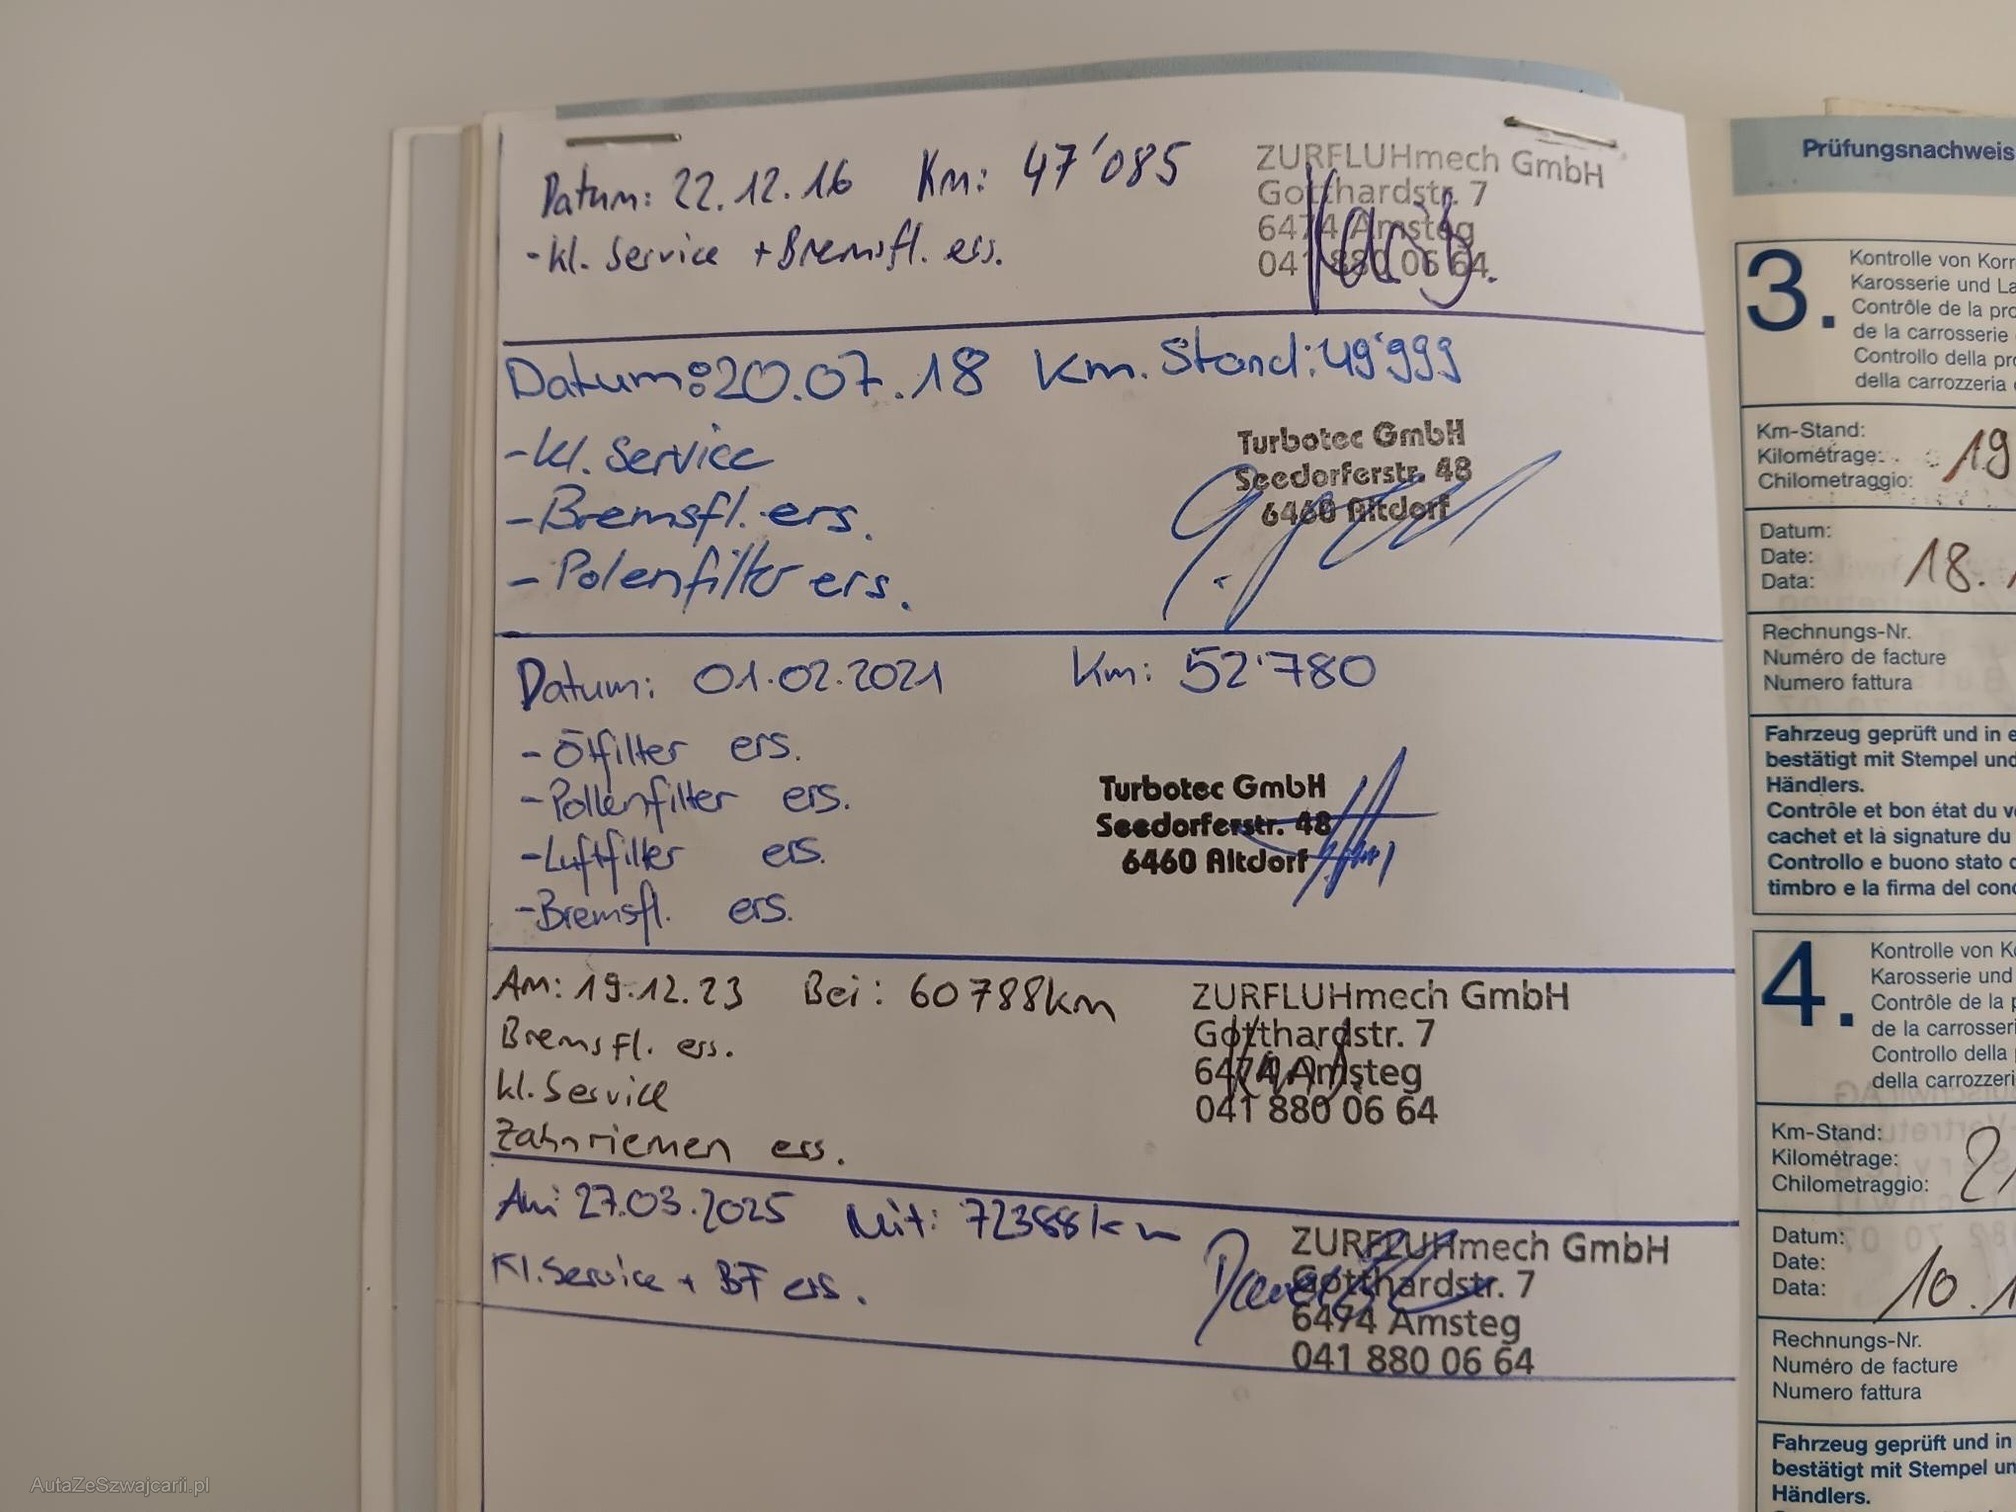 Datum: 22.12.16 Km: 47'085
-Kl. Service + Bremsfl. ers.
ZURFLUHmech GmbH
Gotthardstr. 7
6474 Amsteg
041 880 06 64
Datum: 20.07.18 Km. Stand: 49'999
-Kl. Service
-Bremsfl. ers.
-Polenfilter ers.
Turbotec GmbH
Seedorferstr. 48
6460 Altdorf
Datum: 01.02.2021 Km: 52'780
-Ölfilter ers.
-Pollenfilter ers.
-Luftfilter ers.
-Bremsfl. ers.
Turbotec GmbH
Seedorferstr. 48
6460 Altdorf
Am: 19.12.23 Bei: 60788km
Bremsfl. ers.
kl. Service
Zahnriemen ers.
ZURFLUHmech GmbH
Gotthardstr. 7
6474 Amsteg
041 880 06 64
Am: 27.03.2025 Mit: 72388km
Kl. Service + BF ers.
ZURFLUHmech GmbH
Gotthardstr. 7
6474 Amsteg
041 880 06 64
Prüfungsnachweis
3.
Kontrolle von Korr
Karosserie und La
Contrôle de la pro
de la carrosserie
Controllo della pr
della carrozzeria
Km-Stand:
Kilométrage:
Chilometraggio:
19
Datum:
Date:
Data:
18.
Rechnungs-Nr.
Numéro de facture
Numero fattura
Fahrzeug geprüft und in e
bestätigt mit Stempel und
Händlers.
Contrôle et bon état du v
cachet et la signature du
Controllo e buono stato d
timbro e la firma del conc
4.
Kontrolle von K
Karosserie und
Contrôle de la p
de la carrosseri
Controllo della
della carrozzeri
Km-Stand:
Kilométrage:
Chilometraggio:
2
Datum:
Date:
Data:
10.1
Rechnungs-Nr.
Numéro de facture
Numero fattura
Fahrzeug geprüft und in
bestätigt mit Stempel un
Händlers.
AutaZeSzwajcarii.pl